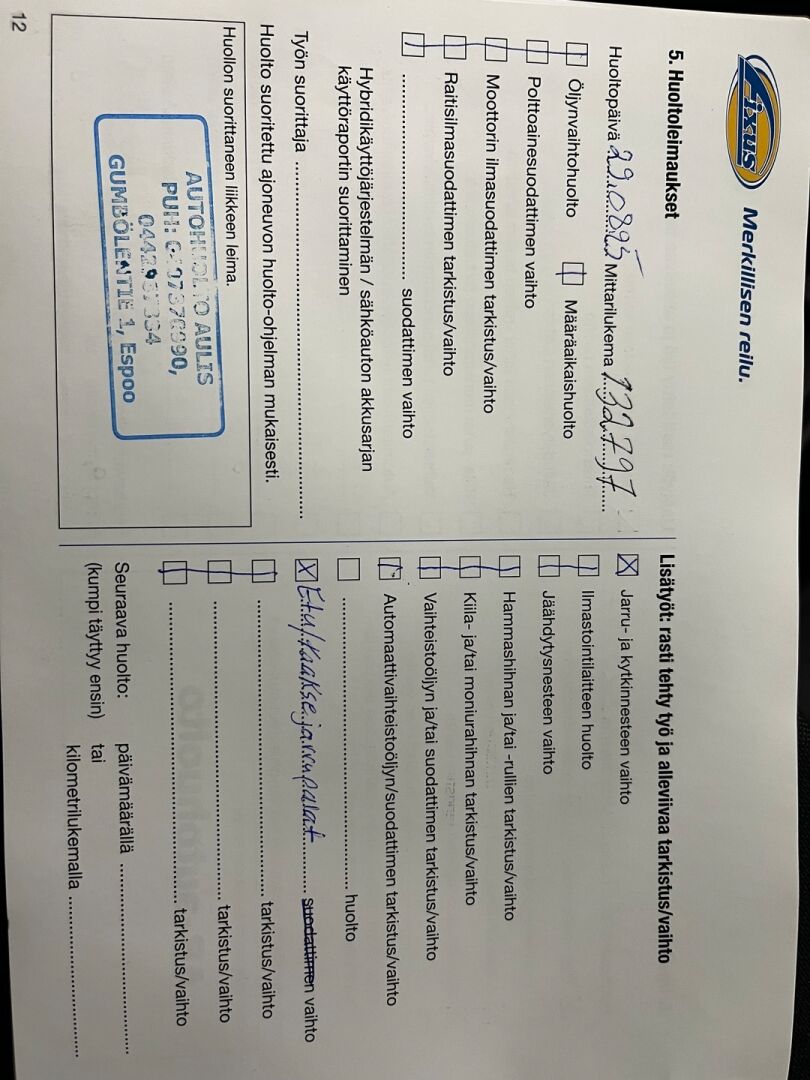 Fixus
Merkillisen reilu.
5. Huoltoleimaukset
Huoltopäivä 29.08.25 Mittarilukema 132.797
Öljynvaihtohuolto Määräaikaishuolto
Polttoainesuodattimen vaihto
Moottorin ilmasuodattimen tarkistus/vaihto
Raitisilmasuodattimen tarkistus/vaihto
........................ suodattimen vaihto
Hybridikäyttöjärjestelmän / sähköauton akkusarjan
käyttöraportin suorittaminen
Työn suorittaja ........................
Huolto suoritettu ajoneuvon huolto-ohjelman mukaisesti.
Huollon suorittaneen liikkeen leima.
AUTOHUOLTO AULIS
PUH:
GUMBÖLENTIE 1, Espoo
12
Lisätyöt: rasti tehty työ ja alleviivaa tarkistus/vaihto
X Jarru- ja kytkinnesteen vaihto
Ilmastointilaitteen huolto
Jäähdytysnesteen vaihto
Hammashihnan ja/tai -rullien tarkistus/vaihto
Kiila- ja/tai moniurahihnan tarkistus/vaihto
Vaihteistoöljyn ja/tai suodattimen tarkistus/vaihto
Automaattivaihteistoöljyn/suodattimen tarkistus/vaihto
........................ huolto
X Etu/taakse jarrupalat suodattimen vaihto
........................ tarkistus/vaihto
........................ tarkistus/vaihto
........................ tarkistus/vaihto
Seuraava huolto: päivämäärällä ........................
(kumpi täyttyy ensin) tai
kilometrilukemalla ........................